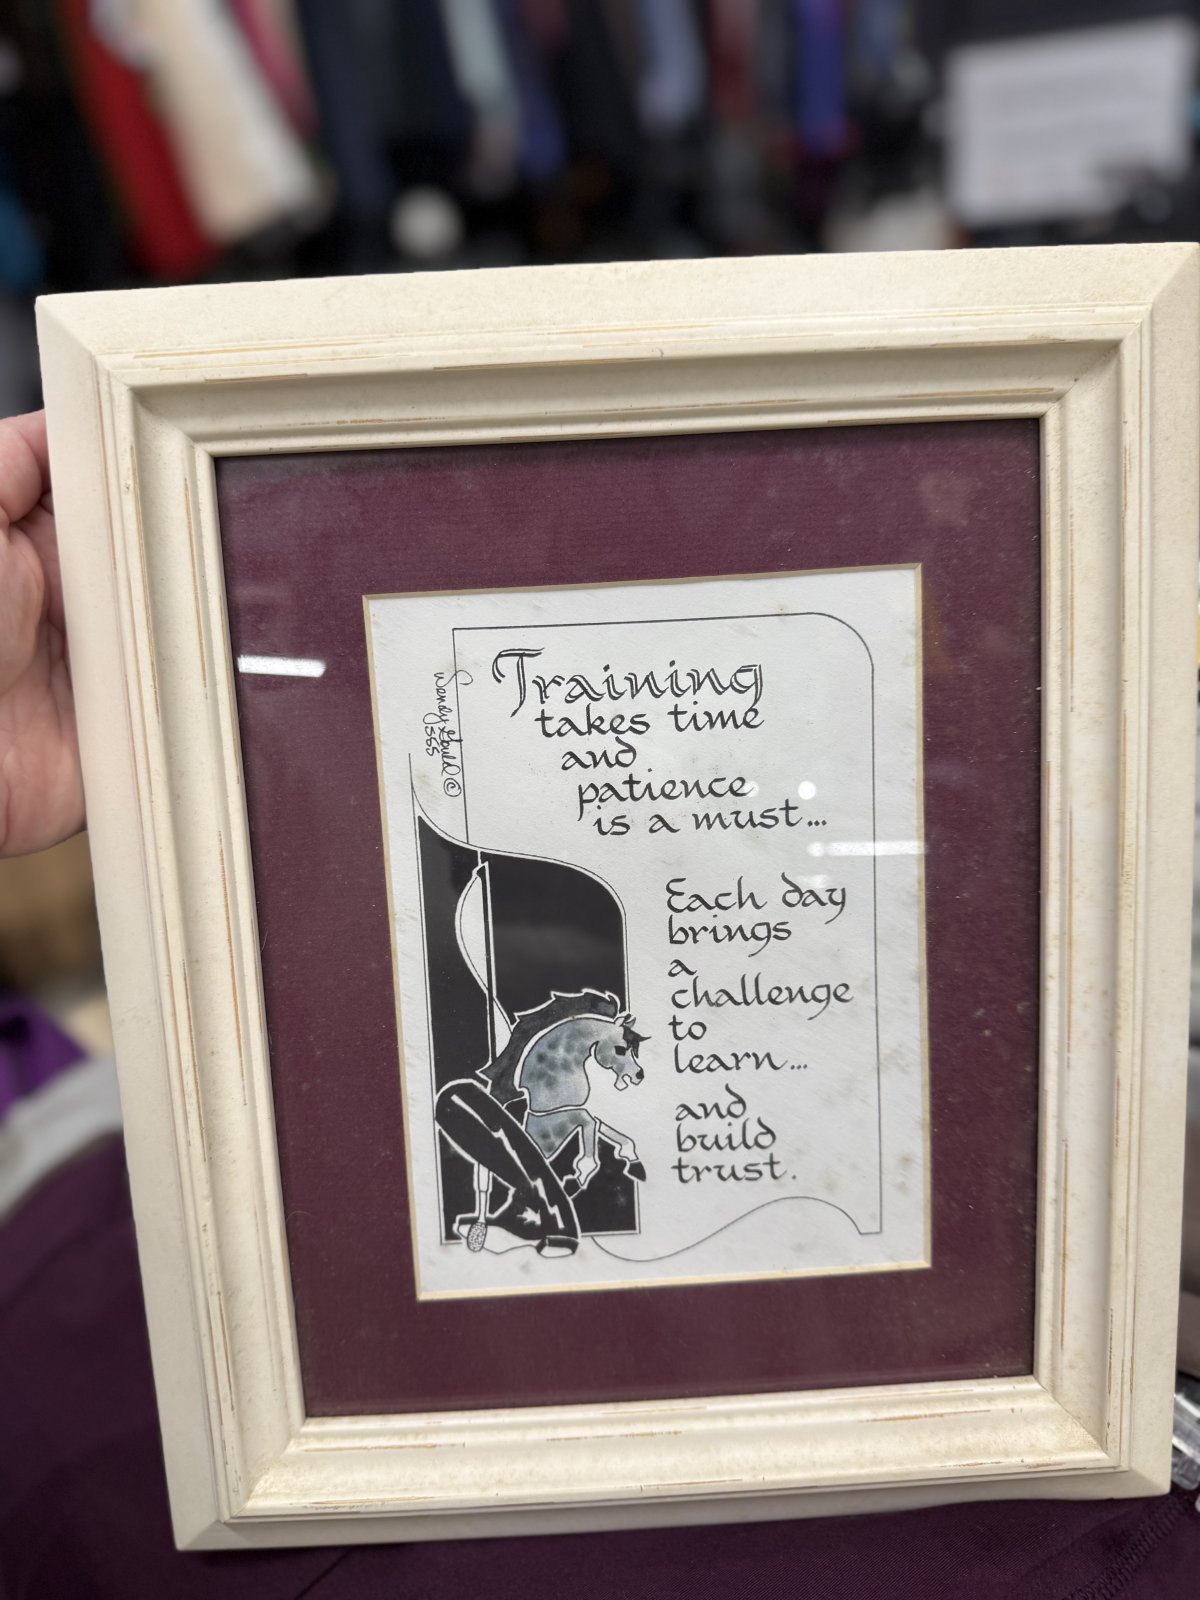 Training
takes time
and
patience
is a must...
Each day
brings
a
challenge
to
learn...
and
build
trust.
Wendy Gould ©